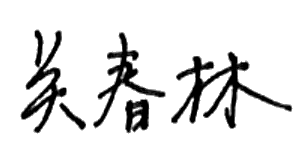 关春林